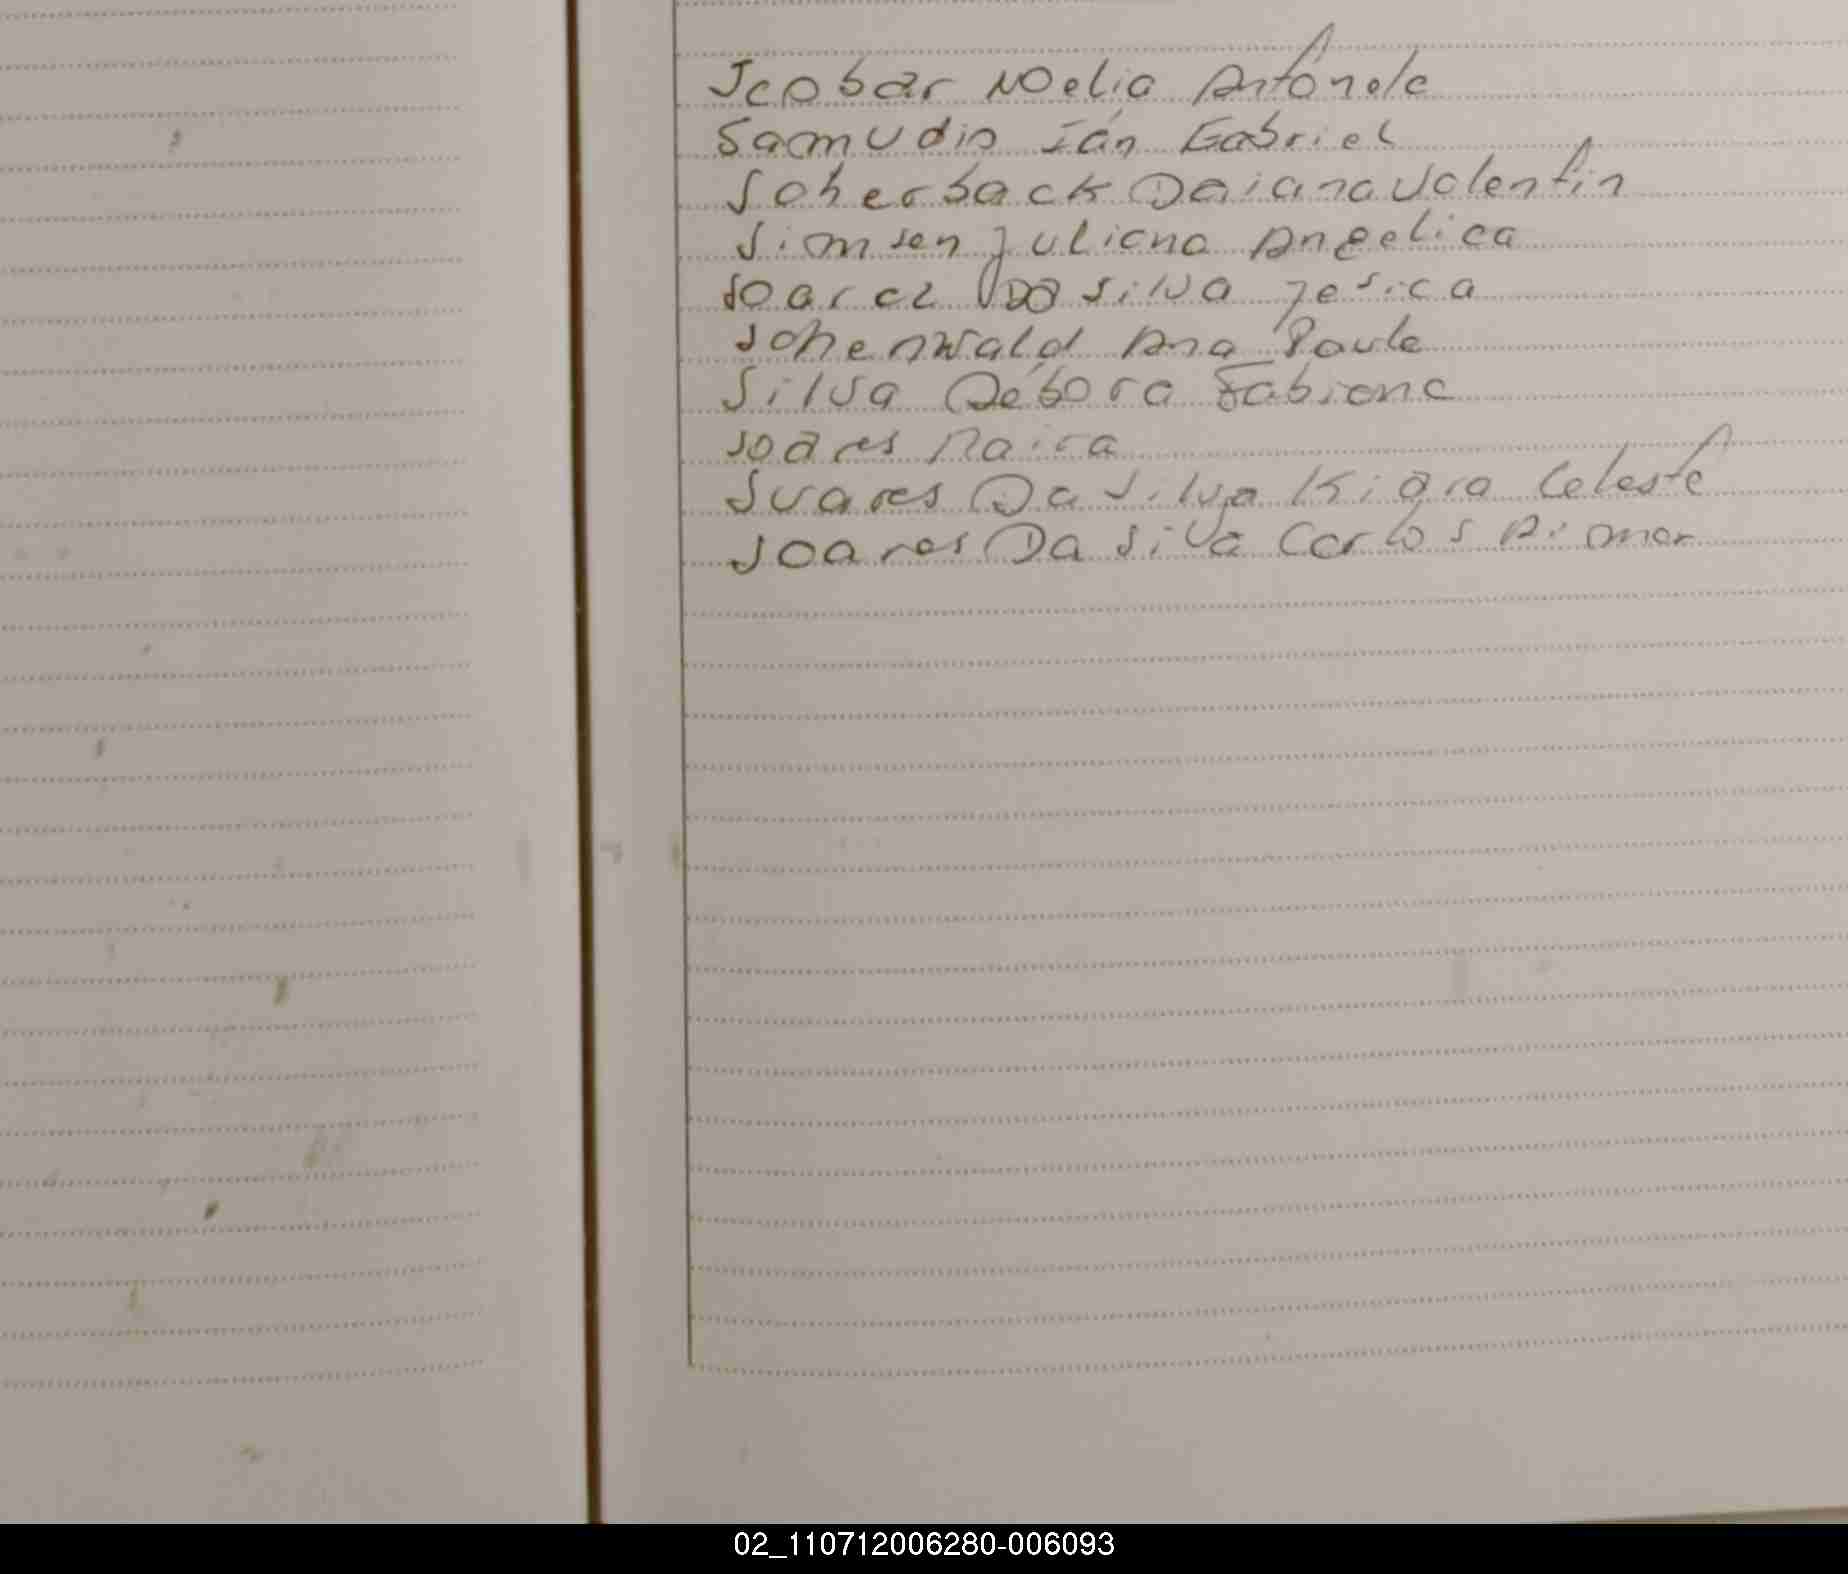 Scobar Noelia Antonela
Samudio Ián Gabriel
Soherback Daiana Valentin
Simsen Juliana Angelica
Soarez Da Silva Jesica
Sohenwald Ana Paula
Silva Débora Fabiana
Soares Naira
Suares Da Silva Kiara Celeste
Soares Da Silva Carlos
02_110712006280-006093